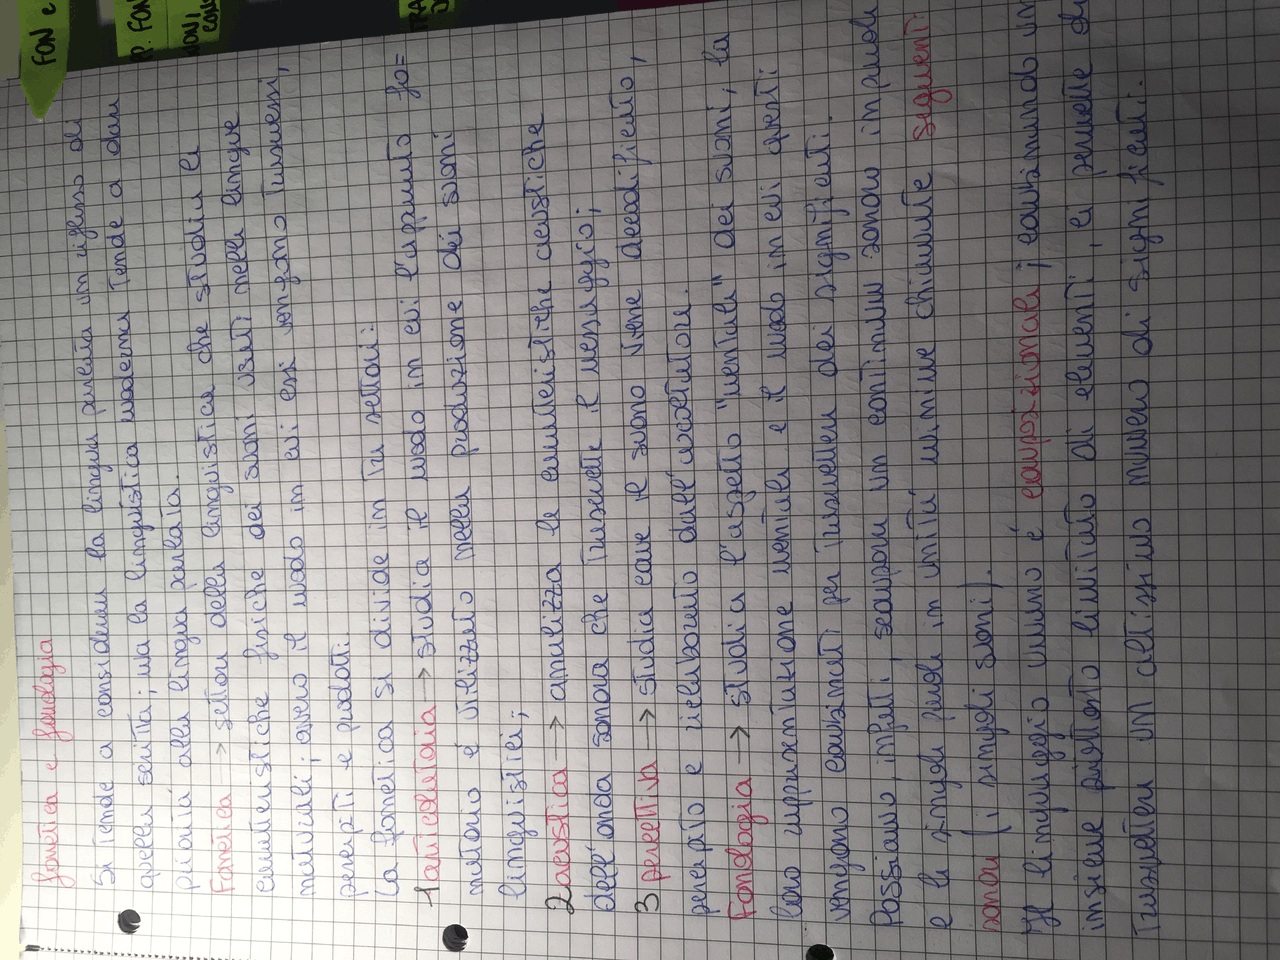 FON e
P. FON
fonetica e fonologia
Si tende a considerare la lingua parlata un riflesso di
quella scritta; ma la linguistica moderna tende a dare
priorità alla lingua parlata.
Fonetica → settore della linguistica che studia le
caratteristiche fisiche dei suoni usati nelle lingue
naturali; ovvero il modo in cui essi vengono trasmessi,
percepiti e prodotti.
La fonetica si divide in tre settori:
1 articolatoria → studia il modo in cui l'apparato fo=
natorio è utilizzato nella produzione dei suoni
linguistici;
2 acustica → analizza le caratteristiche acustiche
dell'onda sonora che trasmette il messaggio;
3 percettiva → studia come il suono viene decodificato,
percepito e rielaborato dall'ascoltatore.
Fonologia → studia l'aspetto "mentale" dei suoni, la
loro rappresentazione mentale e il modo in cui questi
vengono combinati per trasmettere dei significati.
Possiamo, infatti, scomporre un continuum sonoro in parole
e le singole parole in unità minime chiamate segmenti
sonori (i singoli suoni).
Il linguaggio umano è composizionale; combinando un
insieme piuttosto limitato di elementi, ci permette di
trasmettere un altissimo numero di significati.